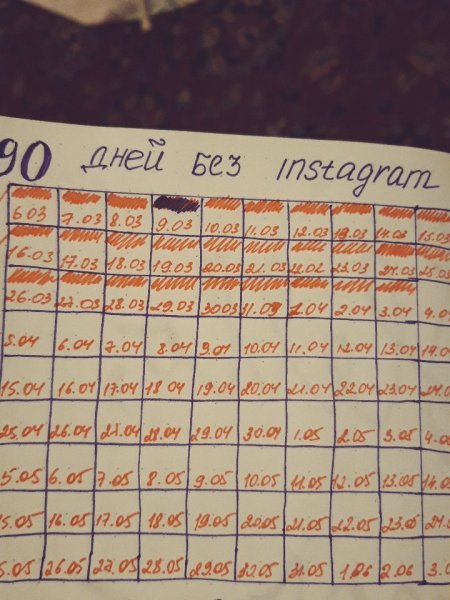 90 дней без instagram
6.03 7.03 8.03 9.03 10.03 11.03 12.03 13.03 14.03 15.03
16.03 17.03 18.03 19.03 20.03 21.03 22.03 23.03 24.03 25.03
26.03 27.03 28.03 29.03 30.03 31.03 1.04 2.04 3.04 4.0
5.04 6.04 7.04 8.04 9.04 10.04 11.04 12.04 13.04 14.0
15.04 16.04 17.04 18.04 19.04 20.04 21.04 22.04 23.04 24.0
25.04 26.04 27.04 28.04 29.04 30.04 1.05 2.05 3.05 4.0
5.05 6.05 7.05 8.05 9.05 10.05 11.05 12.05 13.05 14.0
15.05 16.05 17.05 18.05 19.05 20.05 21.05 22.05 23.05 24.0
5.05 26.05 27.05 28.05 29.05 30.05 31.05 1.06 2.06 3.0